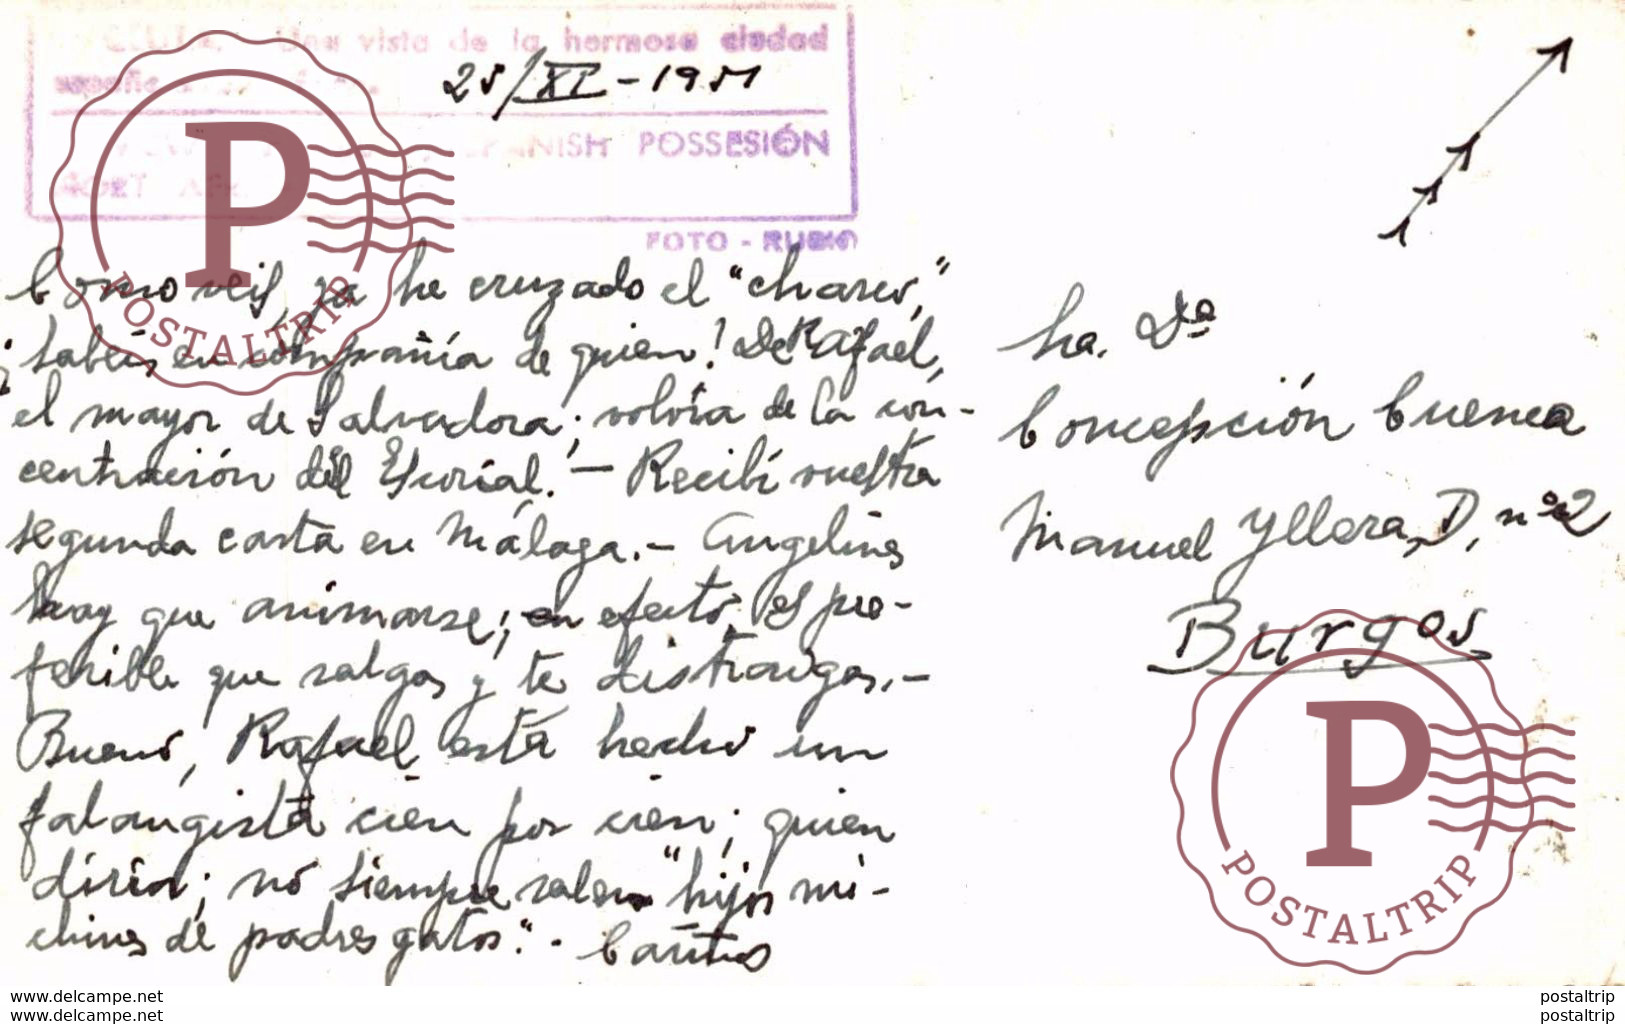 CEUTA. Una vista de la hermosa ciudad
española
25/XI-1951
SPANISH POSSESIÓN
FOTO - RUBIO
Como veis, ya he cruzado el "charco,"
¡sabéis en compañía de quien! De Rafael,
el mayor de Salvadora; volvía de la con-
centración del Escorial. — Recibí vuestra
segunda carta en Málaga.— Angelines
hay que animarse; en efecto, es pre-
ferible que salgas y te distraigas.—
Bueno, Rafael está hecho un
falangista cien por cien; quien
diría; no siempre salen "hijos mi-
chines de padres gatos". Cariños
Sra. Dª
Concepción Cuenca
Manuel Yllera, D, nº 2
Burgos
P
POSTALTRIP
P
POSTALTRIP
www.delcampe.net
www.delcampe.net
postaltrip
postaltrip